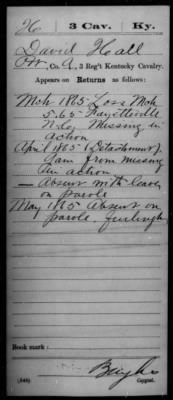 H 3 Cav. Ky.
David Hall
Co. A, 3 Reg't Kentucky Cavalry.
Appears on
Returns as follows:
Mch 1865 Loss Mch
5.65 Fayetteville
N.C. Missing in
Action
April 1865 (Detachment).
Gain from missing
in action
— Absent with leave
on parole
May 1865 Absent on
parole, furlough
Book mark:
(546)
Copyist.